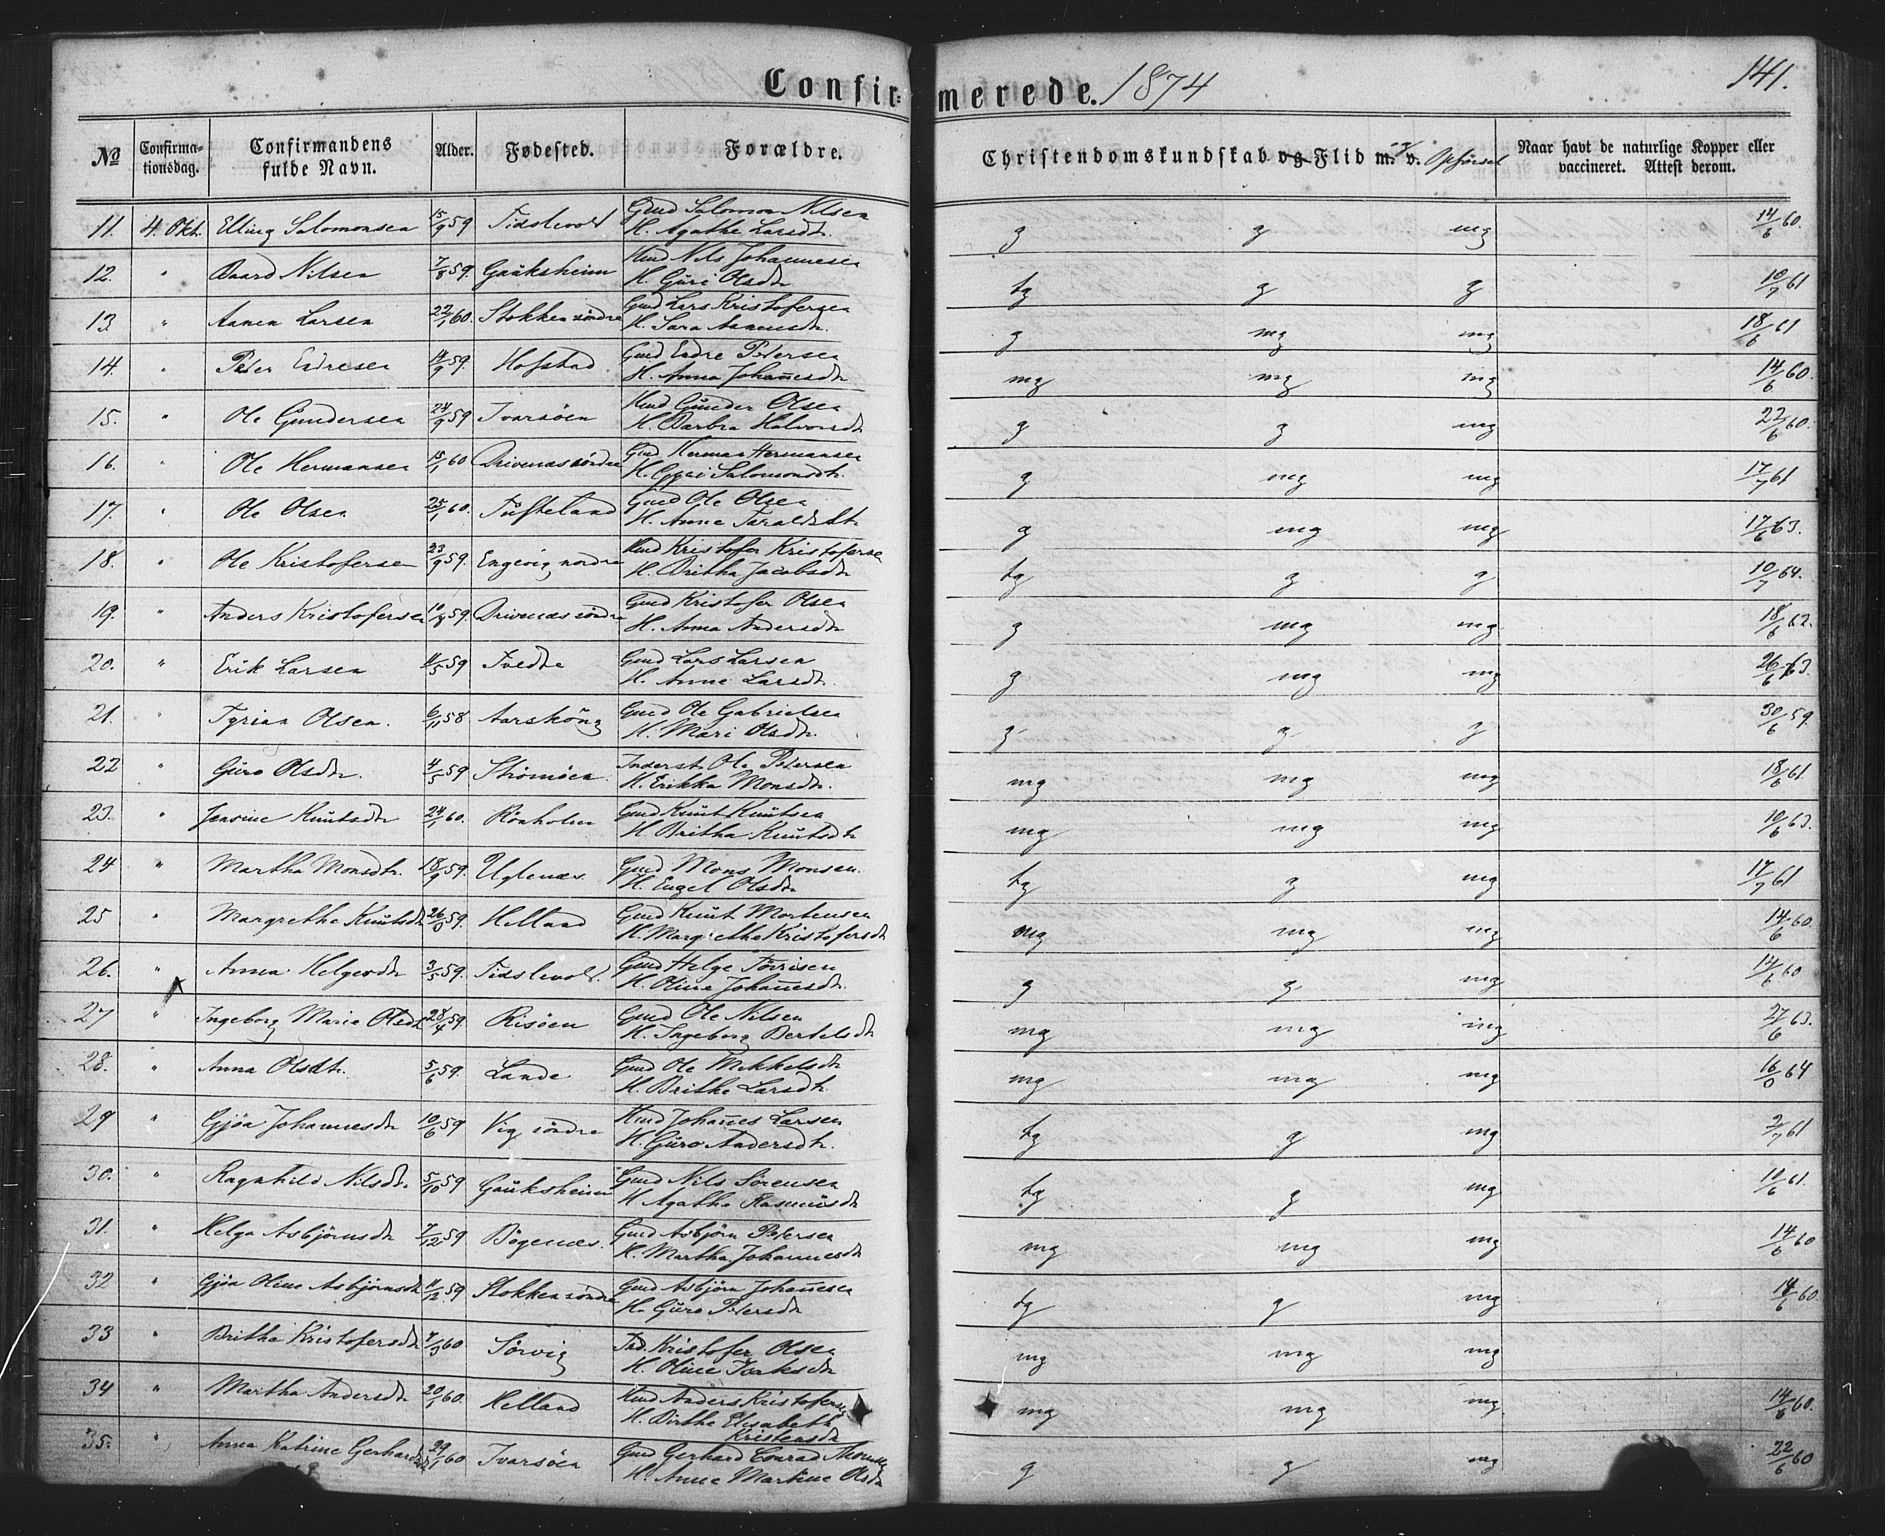 Confir= merede. 1874 141.
No Confirma-tionsdag. Confirmandens fulde Navn. Alder. Fødested. Forældre. Christendomskundskab og Flid m. v. og Opførsel Naar havt de naturlige Kopper eller vaccineret. Attest derom.
11. 4. Okt. Elling Salomonsen 15/9 59 Tidslevold Gmd Salomon Nilsen H. Agathe Larsdtr. g g mg 14/6 60.
12. " Baard Nilsen 7/8 59. Gaüksheim Hmd Nils Johannesen H. Güri Olsdtr tg g g 10/7 61
13 " Aanen Larsen 22/1 60. Stokken söndre Gmd Lars Kristofersen H. Sara Aanensdtr. g mg mg 18/6 61
14. " Peter Endresen 14/9 59. Hofstad Gmd Endre Petersen H. Anna Johañesdtr mg mg mg 14/6 60.
15. " Ole Gündersen 24/9 59 Ivarsöen Hmd Günder Olsen H. Barbra Halvorsdtr g g mg 22/6 60.
16. " Ole Hermansen 15/1 60 Drivenæs söndre Gmd Herman Hermansen H. Salomonsdtr. g mg mg 17/7 61
17. " Ole Olsen 25/1 60. Tüfteland Gmd Ole Olsen H. Anne Taraldsdtr g mg mg 17/6 63.
18. " Ole Kristofersen 23/9 59. Engevig nordre Hmd Kristofer Kristofersen H. Britha Jacobsdtr tg g g 10/7 64.
19. " Anders Kristofersen 10/8 59. Drivenæs söndre Gmd Kristofer Olsen H. Anna Andersdtr g mg mg 18/6 62.
20. " Erik Larsen 11/5 59 Tvedte Gmd Lars Larsen H. Anne Larsdtr. g mg mg 26/6 63.
21. " Tyrian Olsen. 6/11 58 Aarsköng Gmd Ole Gabrielsen H. Mari Olsdtr. g g g 30/6 59.
22 " Güro Olsdtr. 4/5 59 Strömöen. Inderst Ole Petersen H. Erikka Monsdtr. mg mg mg 18/6 61.
23. " Jensine Knütsdtr 24/1 60. Rönholm Gmd Knüt Knütsen H Britha Knütsdtr mg mg mg 10/6 63.
24 " Martha Monsdtr. 18/9 59. Uglenæs. Gmd Mons Monsen. H. Engel Olsdtr tg g mg 17/7 61
25 " Margrethe Knütsdtr 26/0 59. Helland Gmd Knüt Mortensen H. Margrethe Kristofersdtr mg mg mg 14/6 60.
26. " Anna Helgesdtr 3/5 59. Tidslevold. Gmd Helge Törrisen H. Oline Johañesdtr. g g mg 14/6 60
27 " Ingeborg Marie Olsdtr 28/4 59. Risöen Gmd Ole Nilsen H. Ingeborg Bertelsdtr mg mg mg 27/6 63.
28. " Anna Olsdtr. 5/6 59. Lande. Gmd Ole Mikkelsdtr H. Brithe Larsdtr. mg mg mg 16/0 64
29 " Gjöa Johannesdtr 10/6 59 Vig söndre Hmd Johañes Larsen H. Güro Andersdtr. tg g mg 2/7 61
30. " Ragnhild Nilsdtr 5/10 59 Gaüksheim Gmd Nils Sörensen H Agatha Rasmüsdtr tg g mg 10/6 61.
31. " Helga Asbjörnsdtr 7/12 59 Bögenæs. Gmd Asbjörn Petersen H. Martha Johannesdtr mg mg mg 14/6 60
32 " Gjöa Oline Asbjörnsdtr 11/12 59 Stokken söndre Gmd Asbjörn Johañesen H. Güro Petersdtr tg g mg 14/6 60.
33 " Britha Kristofersdtr 4/3 60 Sörvig Kristofer Olsen H. Oline mg mg mg
34 " Martha Andersdtr 20/1 60. Helland Hmd Anders Kristofersen H. Birthe Elisabeth Kristensdtr mg mg mg. 14/6 60.
35. " Anna Katrine Gerhardsdtr 29/1 60 Ivarsöen Gmd Gerhard Conrad H. Anne Martine Olsdtr g g mg 22/6 60